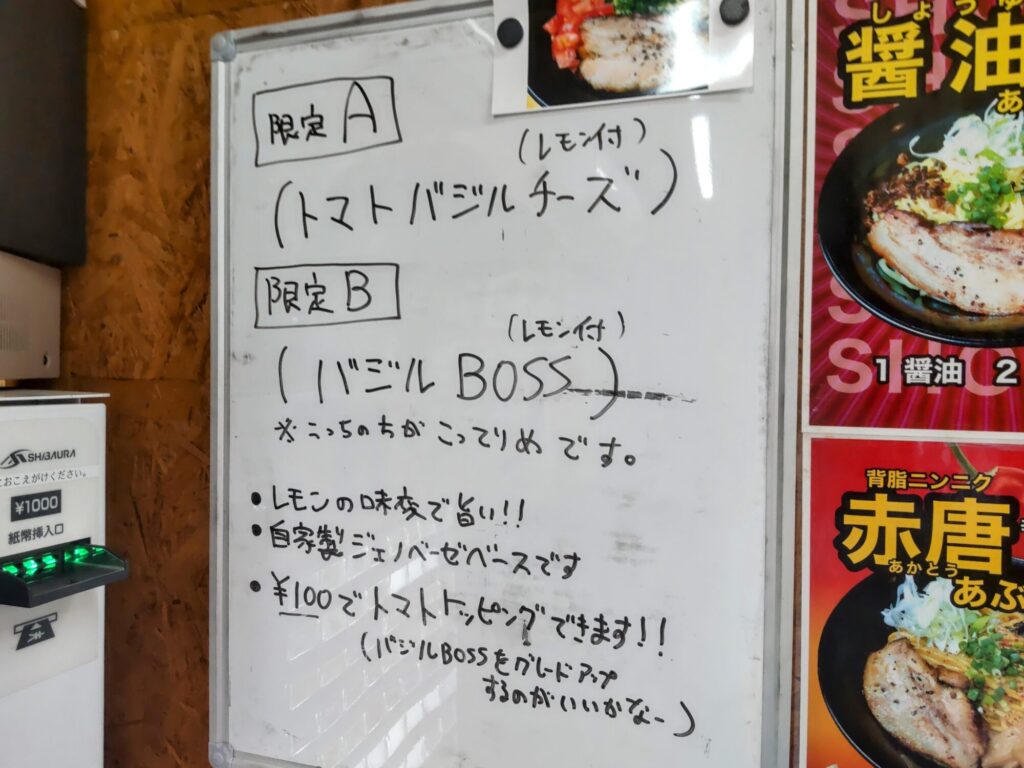 限定 A
(レモン付)
(トマトバジルチーズ)
限定 B
(レモン付)
(バジル BOSS)
※こっちのちがこってりめです。
• レモンの味変で旨い!!
• 自家製ジェノベーゼベースです
• ¥100でトマトトッピングできます!!
(バジルBOSSをグレードアップ
するのがいいかなー)
SHIBAURA
におこえがけください。
¥1000
紙幣挿入口
しょうゆ
醤油
あ
1 醤油 2
背脂ニンニク
赤唐
あかとう
あぶ